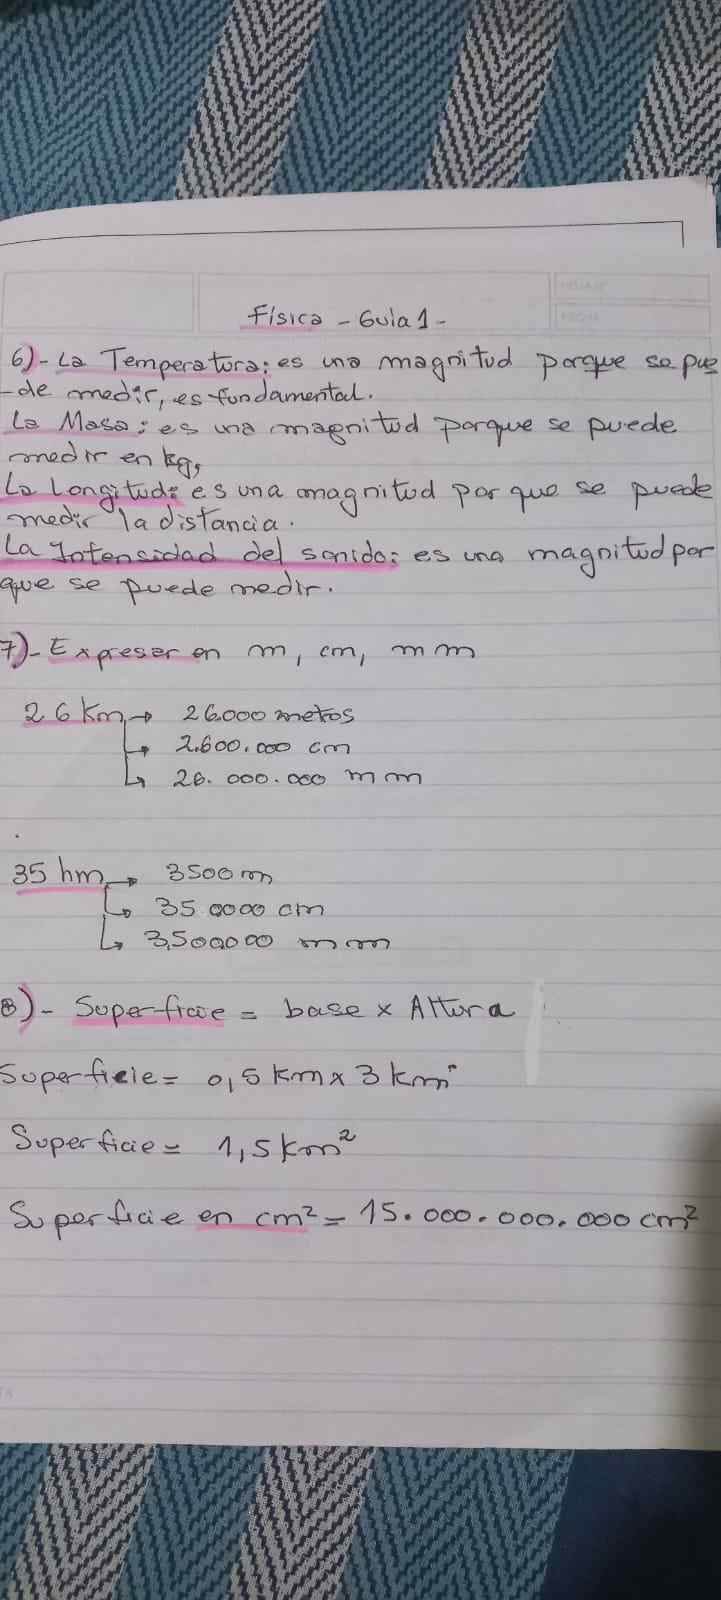 Física - Guia 1 -
6)- La Temperatura: es una magnitud porque se pue
- de medir, es fundamental.
La Masa: es una magnitud porque se puede
medir en kg,
La Longitud: es una magnitud por que se puede
medir la distancia.
La Intensidad del sonido: es una magnitud por
que se puede medir.
7)- Expresar en m, cm, mm
26 Km → 26.000 metos
↳ 2.600.000 cm
↳ 26.000.000 mm
35 hm → 3500 m
↳ 35.0000 cm
↳ 3,500000 mm
8)- Superficie = base x Altura
Superficie = 0,5 km x 3 km
Superficie = 1,5 km²
Superficie en cm² = 15.000.000.000 cm²